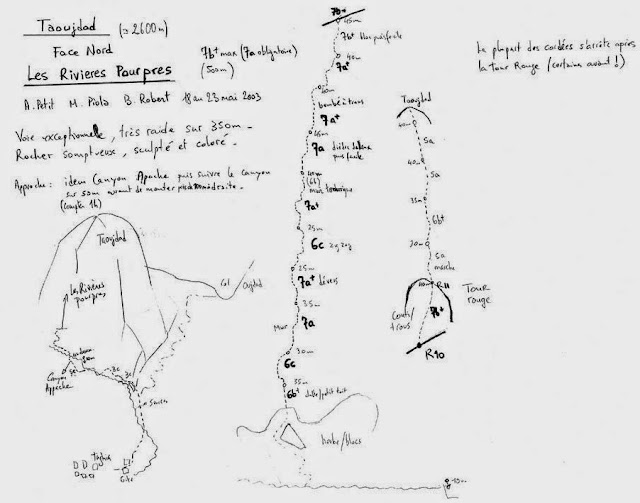 Taoujdad (≃ 2600m)
Face Nord
7b+ max (7a obligatoire)
Les Rivières Pourpres
(500m)
A. Petit M. Piola B. Robert 18 au 23 mai 2003
Voie exceptionnelle, très raide sur 350m -
Rocher somptueux, sculpté et coloré -
Approche : idem Canyon Apache puis suivre le canyon
sur 50m avant de monter
(compter 1h)
Taoujdad
Les Rivières
pourpres
Canyon
Appache
3c
3c
Col
Oujdad
Source
Taghia
Gite
7b+
45m
7b+
puis facile
40m
7a+
40m
bombé à trous
7a+
45m
7a dièdre
puis facile
40m
(6b)
mur
7a+
25m
6c zig zag
25m
7a+ dévers
35m
Mur 7a
30m
6c
35m
6b+ dalle/petit toit
herbe/blocs
La plupart des cordées s'arrête après
la Tour Rouge (certains avant !)
Taoujdad
40m
5a
40m
5a
35m
6b+
20m
5a
marche
R11
Tour
rouge
trous
7b+
R10